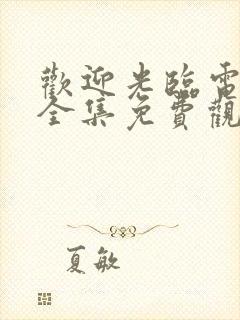 歡迎光臨電
全集免費觀
夏敏